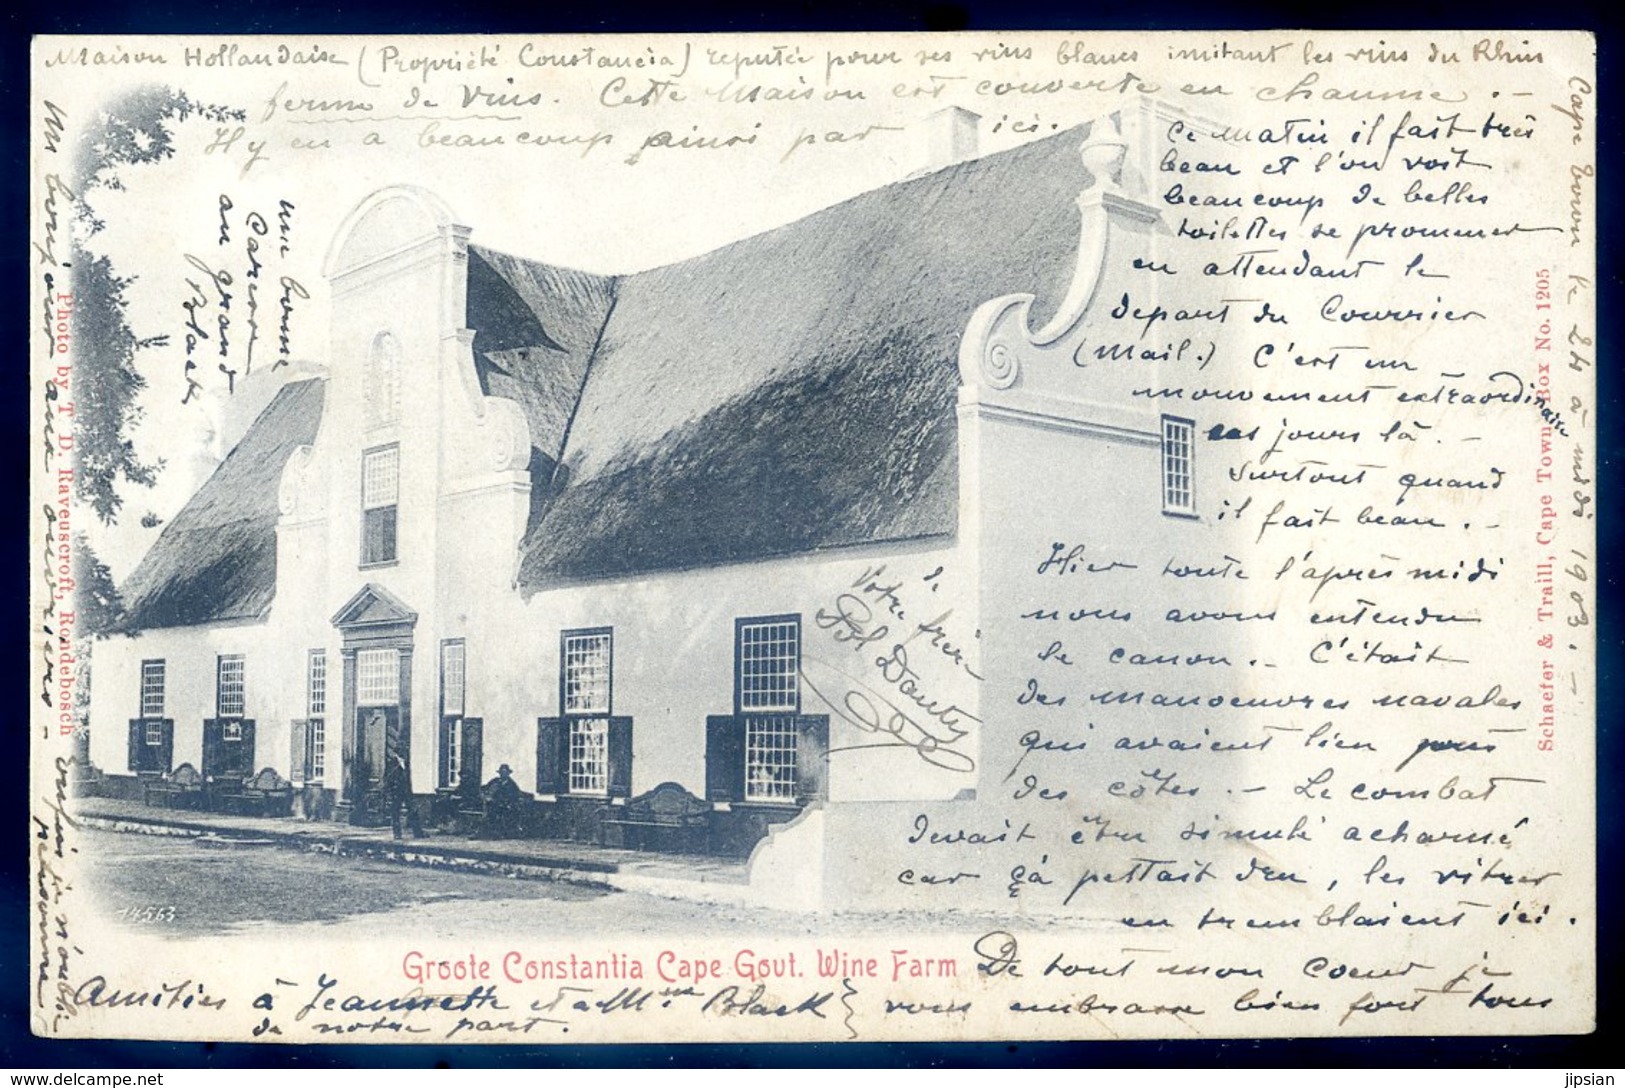 Maison Hollandaise (Propriété Constancia) reputée pour ses vins blancs imitant les vins du Rhin
ferme de vins. Cette Maison est couverte en chaume. -
Il y en a beaucoup ainsi par ici.
Cape Town le 24 à midi 1903. -
Ce matin il fait très
beau et l'on voit
beaucoup de belles
toilettes se promener
en attendant le
depart du Courrier
(Mail.) C'est un
mouvement extraordinaire
ces jours là. -
Surtout quand
il fait beau. -
Hier toute l'après midi
nous avons entendu
le canon. - C'était
des manoeuvres navales
qui avaient lieu près
des côtes. - Le combat
devait être simulé acharné
car çà pettait dru, les vitres
en tremblaient ici.
De tout mon coeur je
vous embrasse bien fort tous
Votre frère
de
Pol Dauty
une bonne
Caresse
au grand
Black
Un bonjour aux ouvriers - enfin je n'oublie
personne
Amitiés à Jeannette et à Mme Black
de notre part.
Photo by T. D. Raveuscroft, Rondebosch
Schaefer & Traill, Cape Town, Box No. 1205
14563
Groote Constantia Cape Gout. Wine Farm
www.delcampe.net
jipsian